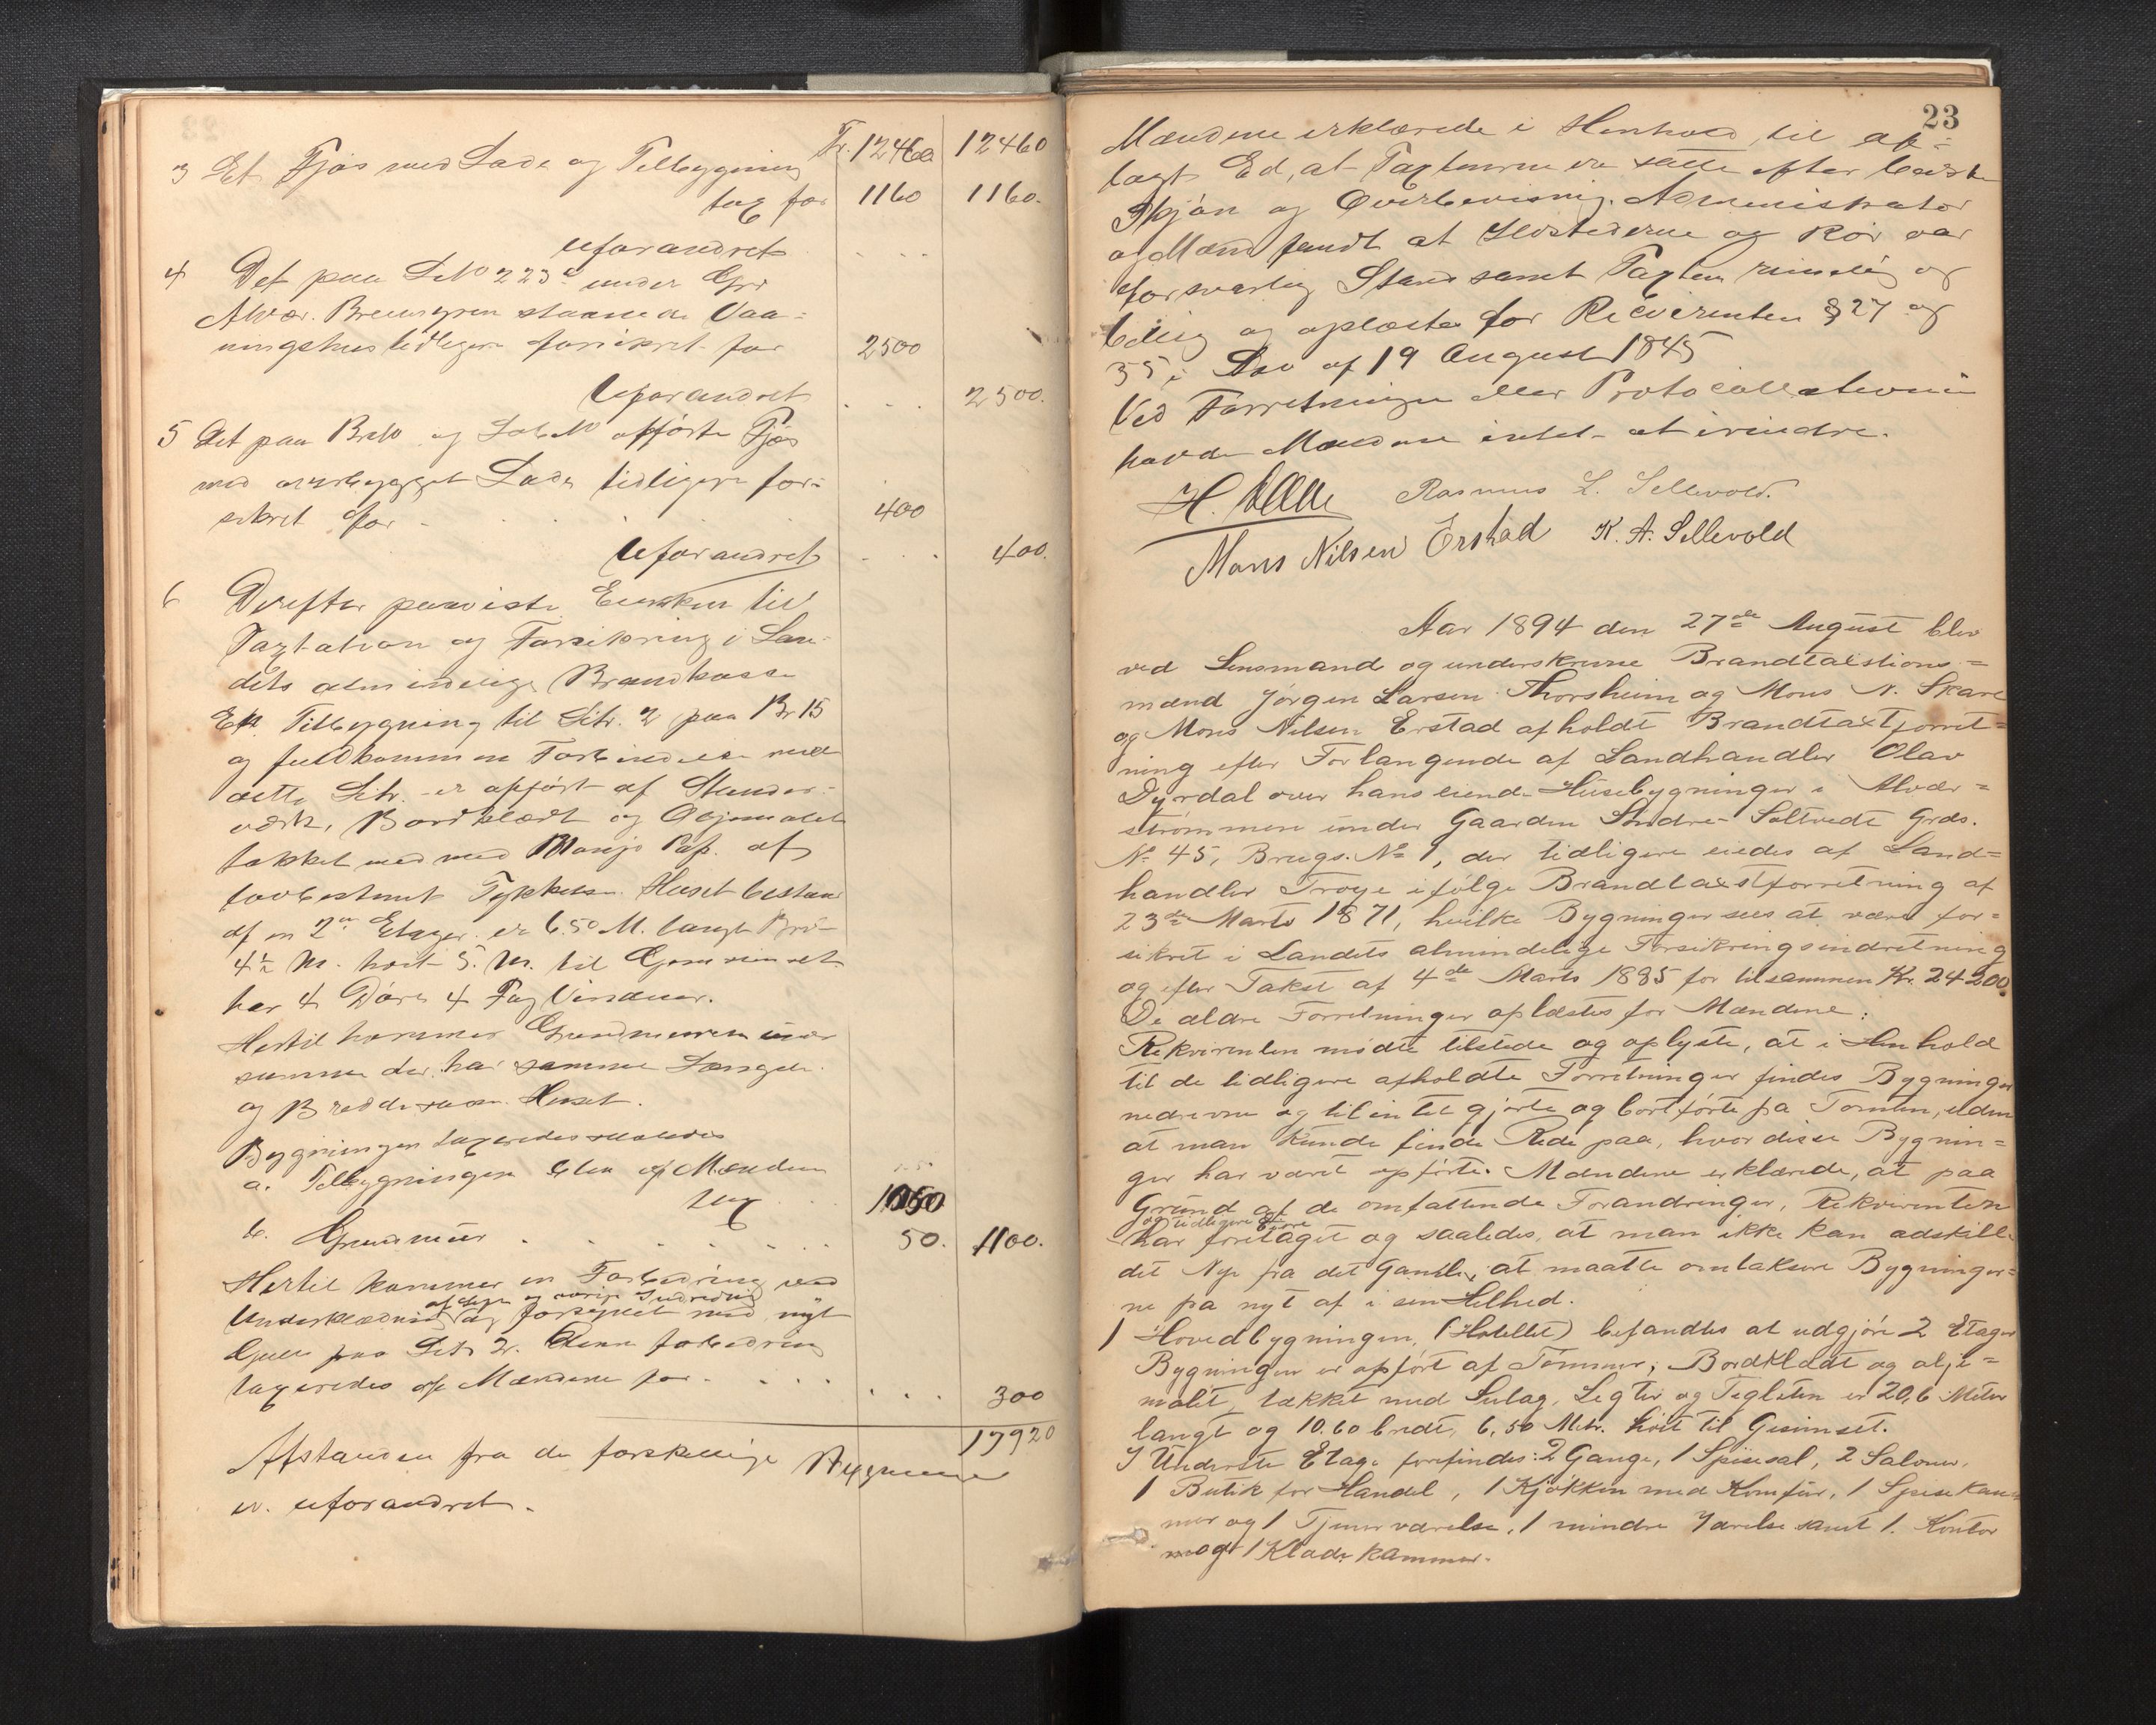 Tr. 12460 12460
3 Et Fjøs med Lade og Tilbygning
tax for 1160 1160.
uforandret
4 Det paa LNo 223 under Grd
Alvær. staaende Vaa-
ningshus tidligere forsikret for 2500
Uforandret 2500.
5 Det paa BNo og LNo opførte Fjøs
med overbygget Lade tidligere for-
sikret for 400
Uforandret 400.
6 Derefter paaviste Enken til
Taxtation og Forsikring i Lan-
dets almindelige Brandkasse
En Tilbygning til Litr. 2 paa Br 15
og fuldkommen Forbindelse med
dette Litr. er opført af Stender-
værk, Bordklædt og Oljemalet
takket med med Pap. af
lovbestemt Tykkelse. Huset bestaar
af en 2 Etager. er 6.50 M. langt Br.
4½ M. høit 5. M. til Gesimset
har 4 Døre 4 Fag Vinduer.
Hertil kommer Grundmuren under
samme der har samme Længde
og Bredde som Huset.
Bygningen taxeredes saaledes
a. Tilbygningen blev af Mændene
tax 1050
b. Grundmur 50. 1100.
Hertil kommer en Forbedring ved
af og øvrig Indredning
Underklædning og forsynet med nyt
Gulv paa Litr 2. Denne forbedring
taxeredes af Mændene for 300
17920
Afstanden fra de forskellige Bygninger
er uforandret.
23
Mændene erklærede i Henhold til af-
lagt Ed, at Taxterne er satte efter bedste
Skjøn og Overbevisning. Administrator
og Mænd fandt at Ildstederne og Rør var
forsvarlig Stand samt Taxten rimelig og
billig og oplæste for Recvirenten § 27 og
35 i Lov af 19 August 1845
Ved Forretningen eller Protocollationen
havde Mændene intet at erindre.
H. Rasmus L. Sellevold.
Mons Nilsen Erstad K. A. Sellevold
Aar 1894 den 27de August blev
ved Lensmand og underskrevne Brandtakstions=
mænd Jørgen Larsen Thorsheim og Mons N. Skare
og Mons Nilsen Erstad afholdt Brandtaxtforret=
ning efter Forlangende af Landhandler Olav
Dyrdal over hans eiende Husebygninger i Alvær=
strømmen under Gaarden Søndre Soltvedt Grds.
No 45, Brugs. No 1, der tidligere eiedes af Land=
handler Troye ifølge Brandtaxstforretning af
23de Marts 1871, hvilke Bygninger sees at være for=
sikret i Landets almindelige Forsikringsindretning
og efter Takst af 4de Marts 1885 for tilsammen Kr. 24200.
De ældre Forretninger oplæstes for Mændene:
Rekvirenten mødte tilstede og oplyste, at i Henhold
til de tidligere afholdte Forretninger findes Bygninger
nedrevne og tilintetgjorte og bortførte fra Tomten, uden
at man kunde finde Rede paa, hvor disse Bygnin=
ger har været opførte. Mændene erklærede, at paa
Grund af de omfattende Forandringer, Rekvirenten
og tidligere Eiere
har foretaget og saaledes, at man ikke kan adskille
det Nye fra det Gamle, at maatte omtaksere Bygninger=
ne paa nyt af i sin Helhed.
1 Hovedbygningen, (Hotellet) befandtes at udgjøre 2 Etager
Bygningen er opført af Tømmer, Bordklædt og olje=
malet, tækket med Sutag, Legter og Teglsten er 20,6 Meter
langt og 10.60 bredt, 6,50 Mtr. høit til Gesimset.
I Underste Etage forefindes: 2 Gange, 1 Spisesal, 2 Saloner,
1 Butik for Handel, 1 Kjøkken med Komfur, 1 Spisekam
mer og 1 Tjenerværelse, 1 mindre Værelse samt 1. Kontor
og 1 Klædekammer.